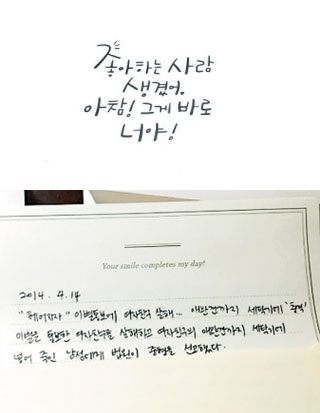 좋아하는 사람
생겼어.
아참! 그게 바로
너야!
Your smile completes my day!
2014. 4. 14
"헤어지자" 이별통보에 여자친구 살해... 애완견까지 세탁기에 '돌려'
이별을 통보한 여자친구를 살해하고 여자친구의 애완견까지 세탁기에
넣어 죽인 남성에게 법원이 중형을 선고했다.